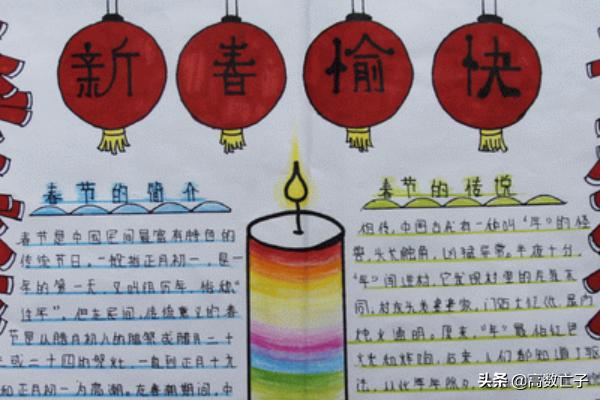 新春愉快
春节的简介
春节是中国民间最富有特色的
传统节日。一般指正月初一，是一
年的第一天，又叫组历年，俗称“
过年”。但在民间，传统意义的春
节是从腊月初八的腊祭或腊月二十
或二十四的祭灶，一直到正月十九
和正月初一为高潮。在春期期间，中
春节的传说
相传，中国古代有一种叫“年”的怪
兽，头长触角，凶猛异常。半夜十分，
“年”闯进村，它发现村里的
同，村东头老婆婆家，门贴大红纸，屋内
烛火通明。原来，“年”最怕红色
火光和炸响。后来，人们都知道了驱
法，从此每年除夕
头条 @高数亡子